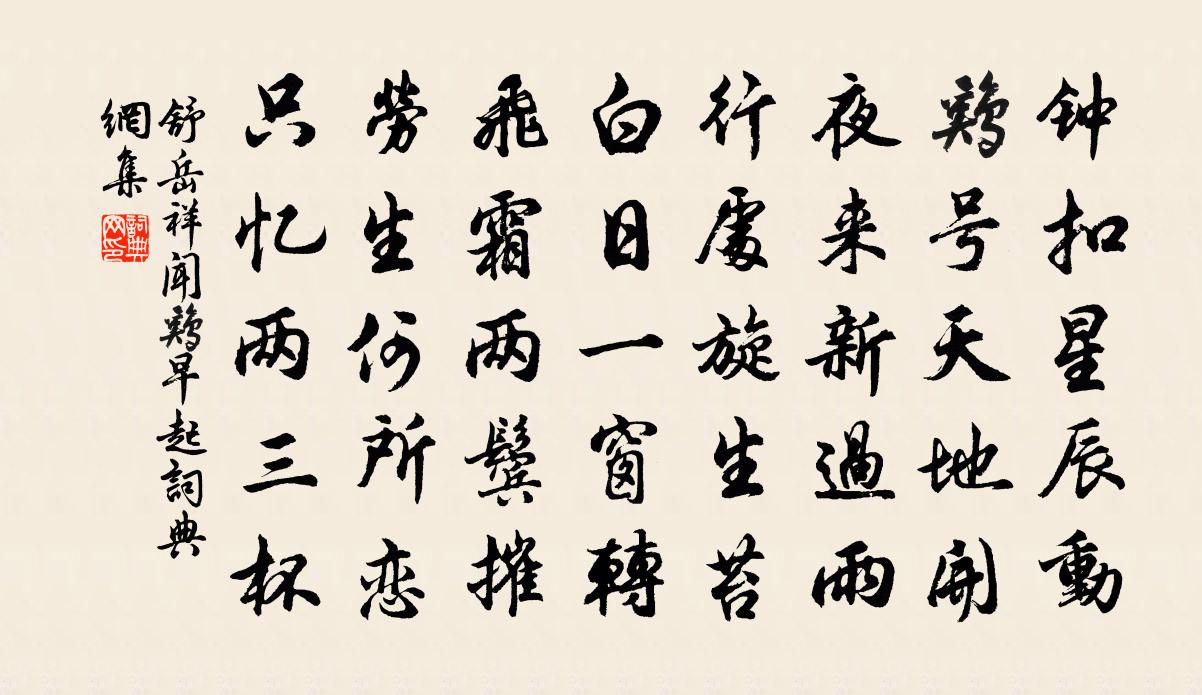 钟扣星辰動
鷄号天地開
夜来新過雨
行處旋生苔
白日一窗轉
飛霜两鬓摧
勞生何所恋
只忆两三杯
舒岳祥聞鷄早起詞典
網集
詞典
网印